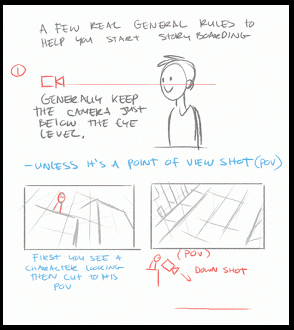 A FEW REAL GENERAL RULES TO
HELP YOU START STORY BOARDING
1
GENERALLY KEEP
THE CAMERA JUST
BELOW THE EYE
LEVEL.
-UNLESS IT'S A POINT OF VIEW SHOT (POV)
FIRST YOU SEE A
CHARACTER LOOKING
THEN CUT TO HIS
POV
(POV)
DOWN SHOT